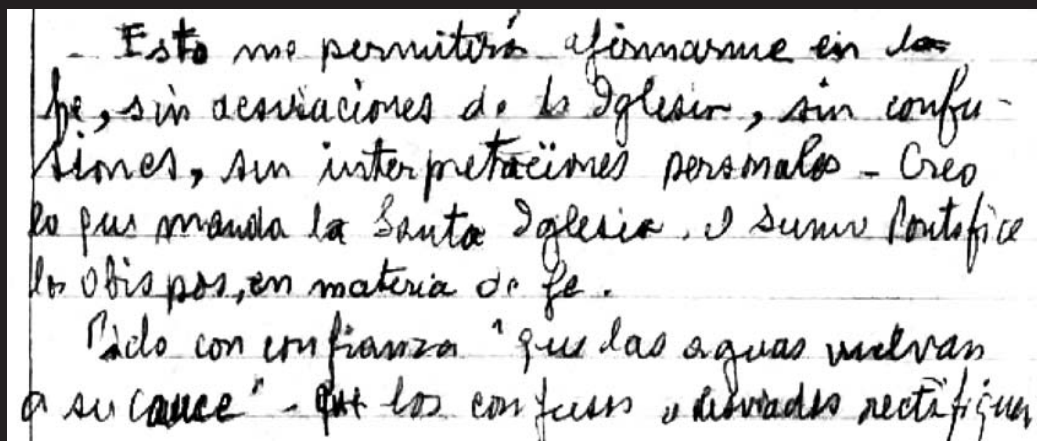 - Esto me permitirá afirmarme en la
fe, sin desviaciones de la Iglesia, sin confu-
siones, sin interpretaciones personales - Creo
lo que manda la Santa Iglesia, el Sumo Pontífice
los Obispos, en materia de fe.
Pido con confianza "que las aguas vuelvan
a su cauce" - que los confusos o desviados rectifiquen